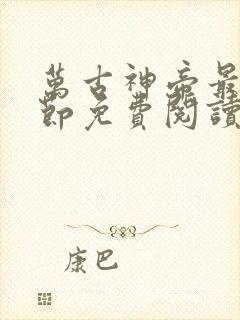 萬古神帝最
節免費閱讀
康巴